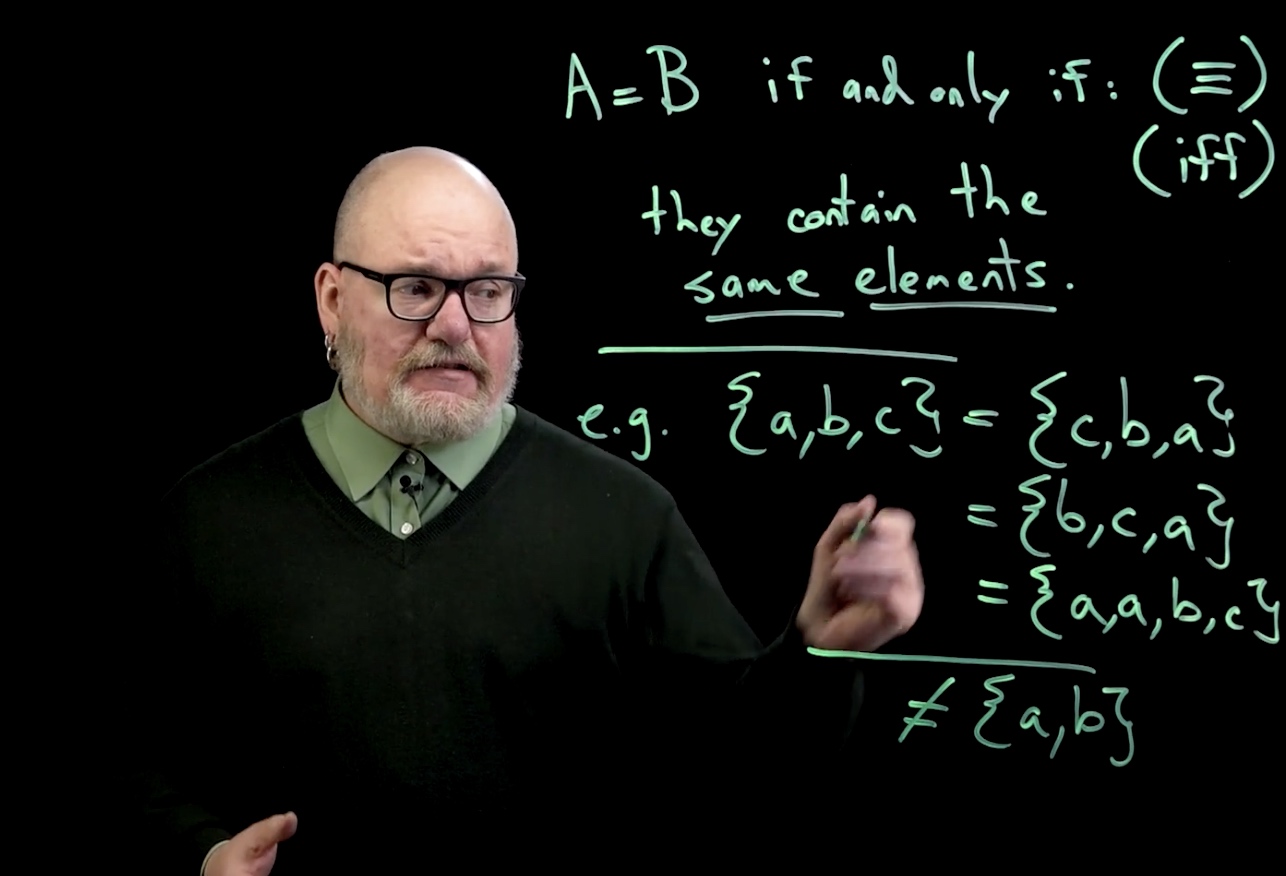 A = B if and only if: (≡)
(iff)
they contain the
same elements.
e.g. {a,b,c} = {c,b,a}
= {b,c,a}
= {a,a,b,c}
≠ {a,b}